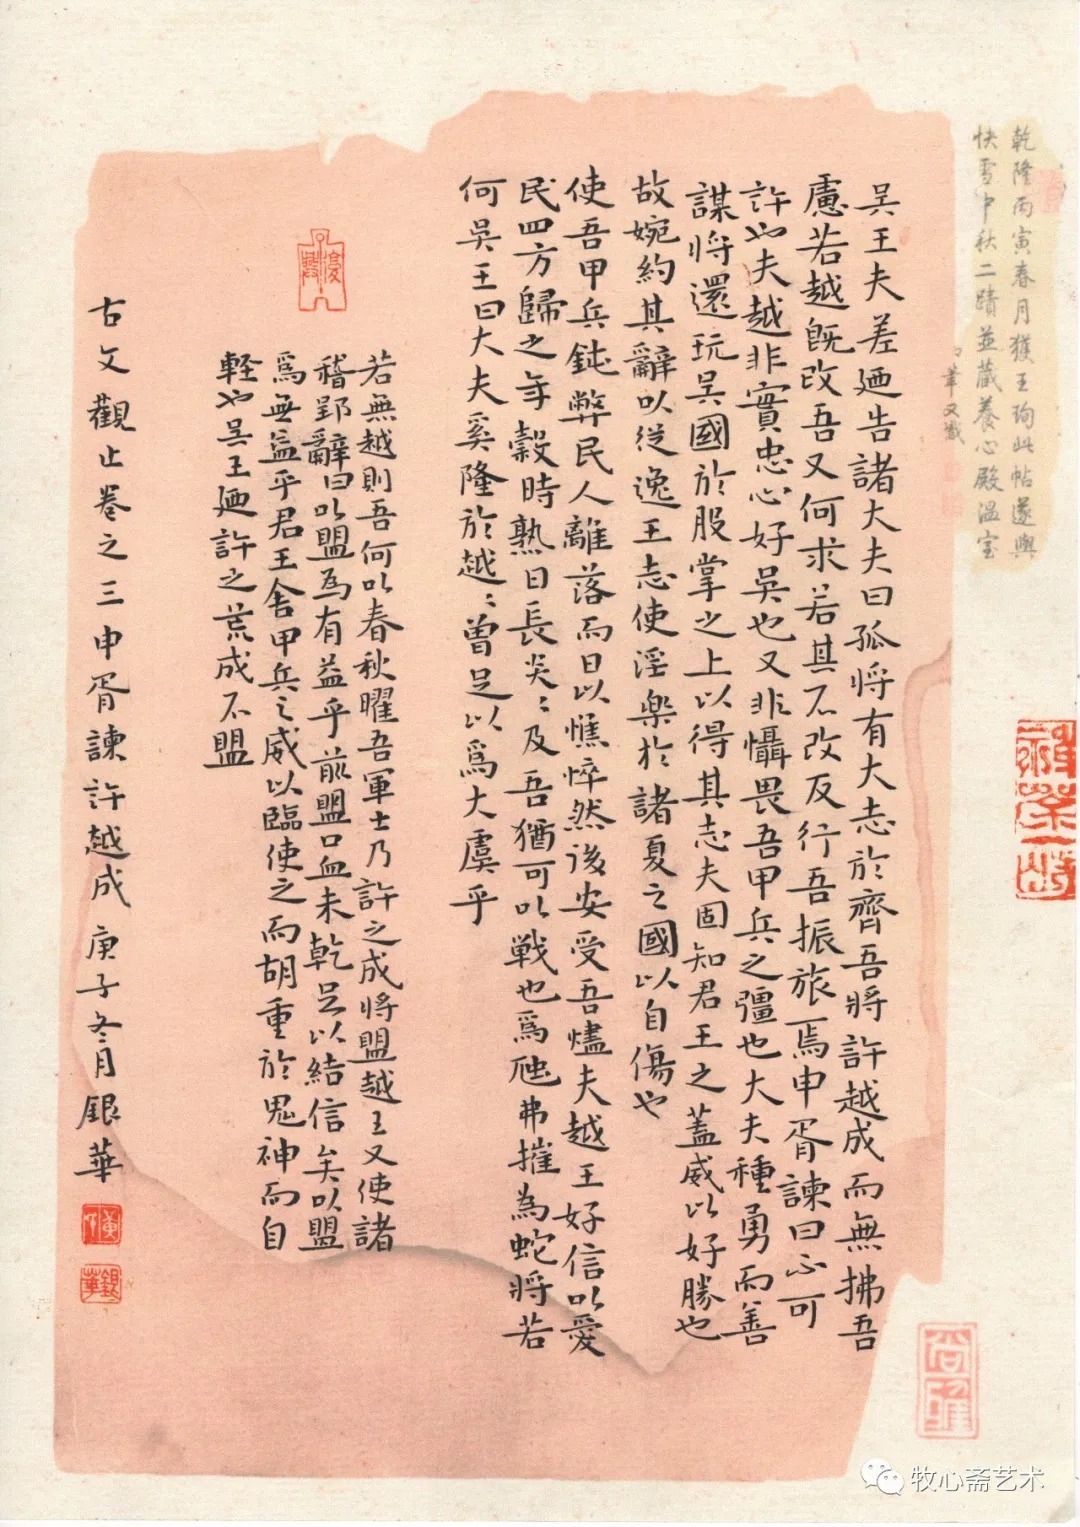 乾隆丙寅春月獲王珣此帖遂與
快雪中秋二蹟並藏養心殿溫室
筆又識
吴王夫差廼告諸大夫曰孤将有大志於齊吾將許越成而無拂吾
慮若越既改吾又何求若其不改反行吾振旅焉申胥諫曰不可
許也夫越非實忠心好吴也又非懾畏吾甲兵之彊也大夫種勇而善
謀将還玩吴國於股掌之上以得其志夫固知君王之蓋威以好勝也
故婉約其辭以從逸王志使淫樂於諸夏之國以自傷也
使吾甲兵鈍弊民人離落而日以憔悴然後安受吾燼夫越王好信以愛
民四方歸之年穀時熟日長炎〻及吾猶可以戰也爲虺弗摧為蛇將若
何吴王曰大夫奚隆於越〻曾足以爲大虞乎
若無越則吾何以春秋曜吾軍士乃許之成将盟越王又使諸
稽郢辭曰以盟為有益乎前盟口血未乾足以結信矣以盟
爲無益乎君王舍甲兵之威以臨使之而胡重於鬼神而自
軽也吴王廼許之荒成不盟
古文觀止卷之三申胥諫許越成 庚子冬月銀華
銀華
牧心斋艺术